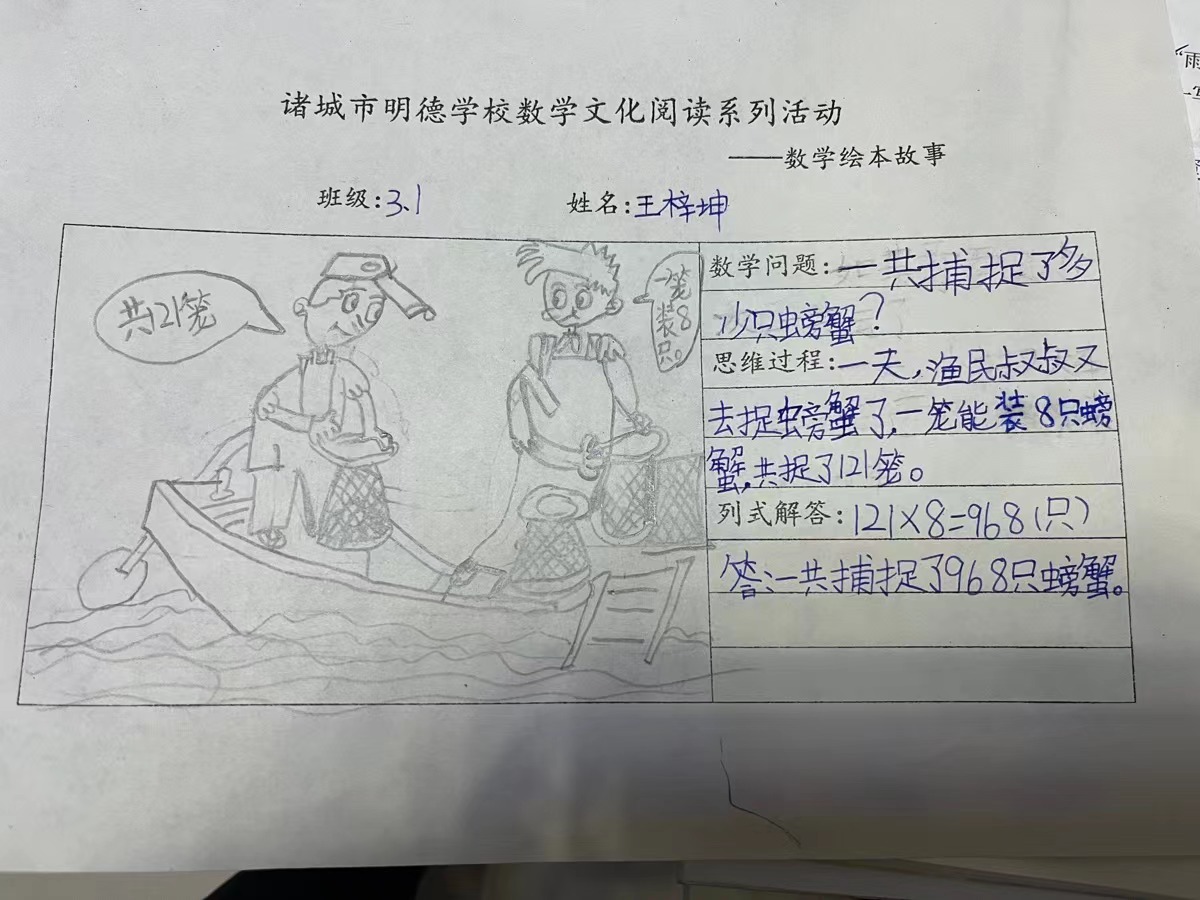 诸城市明德学校数学文化阅读系列活动
——数学绘本故事
班级:3.1 姓名:王梓坤
共121笼
一笼装8只。
数学问题:一共捕捉了多
少只螃蟹?
思维过程:一天,渔民叔叔又
去捉螃蟹了,一笼能装8只螃
蟹,共捉了121笼。
列式解答:121×8=968(只)
答:一共捕捉了968只螃蟹。
"雨